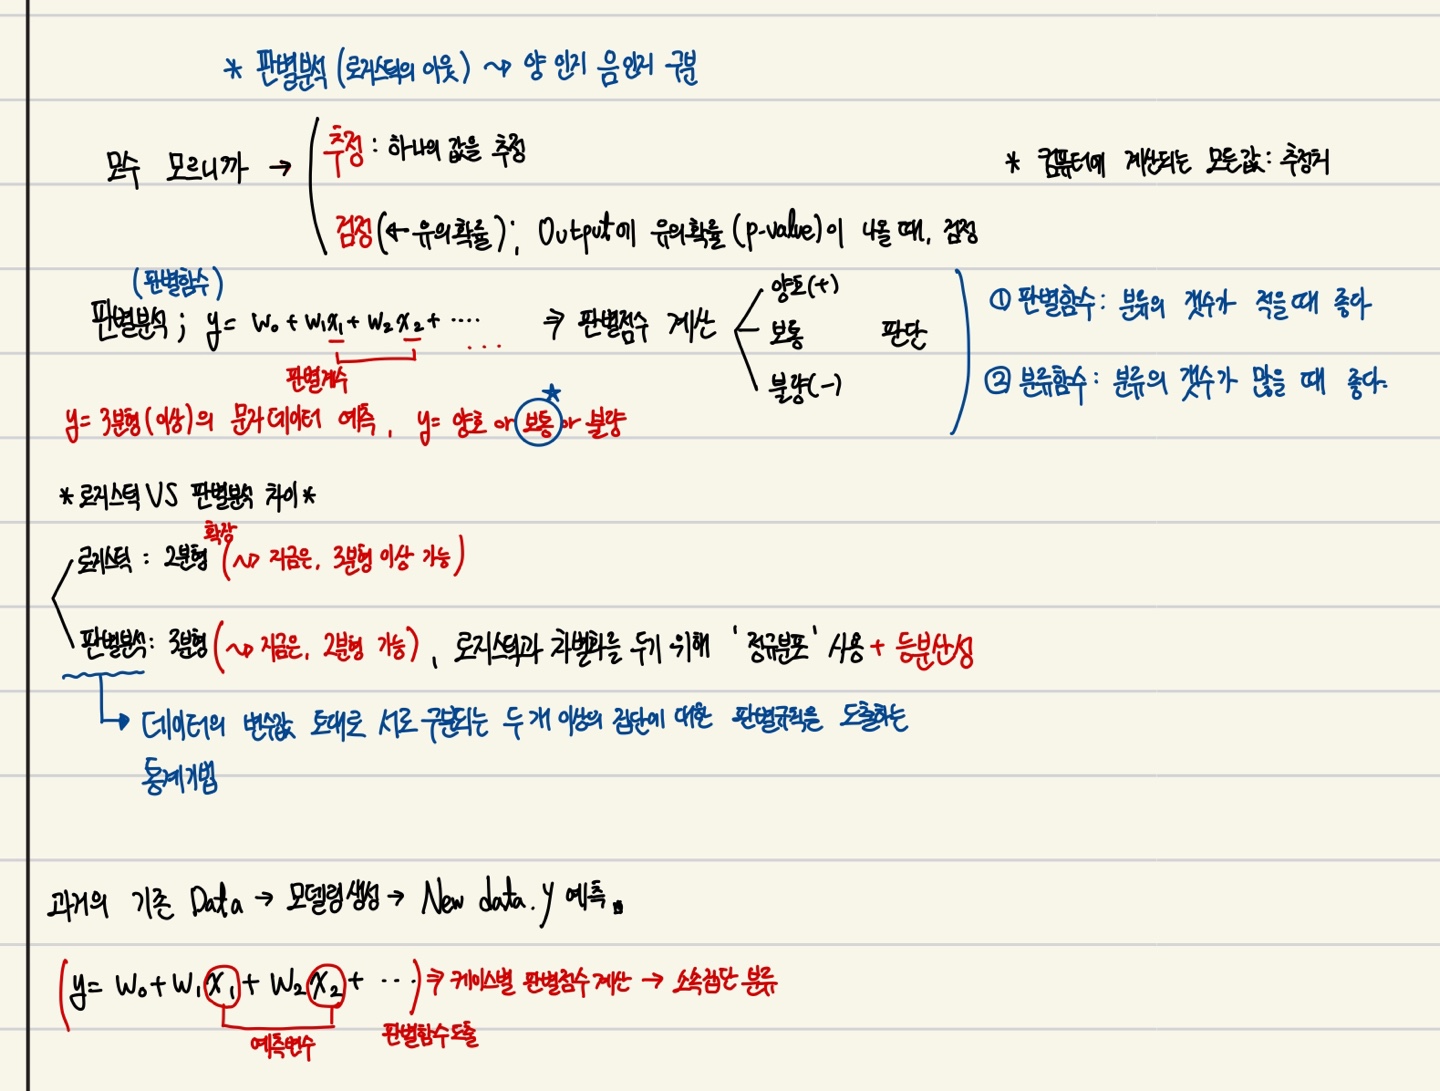 * 판별분석 (로지스틱의 이웃) ~> 양인지 음인지 구분
모수 모르니까 →
추정 : 하나의 값을 추정
* 컴퓨터에 계산되는 모든값 : 추정치
검정 (← 유의확률) ; Output에 유의확률 (p-value)이 나올 때, 검정
(판별함수)
판별분석 ; y = w₀ + w₁x₁ + w₂x₂ + ···· ⇒ 판별점수 계산
양호(+)
보통 판단
불량(-)
판별계수
① 판별함수 : 분류의 갯수가 적을때 좋다
② 분류함수 : 분류의 갯수가 많을 때 좋다.
y = 3분형(이상)의 문자데이터 예측, y = 양호 or 보통 or 불량
* 로지스틱 VS 판별분석 차이 *
확장
로지스틱 : 2분형 (~> 지금은, 3분형 이상 가능)
판별분석 : 3분형 (~> 지금은, 2분형 가능), 로지스틱과 차별화를 두기 위해 '정규분포' 사용 + 등분산성
데이터의 변수값 토대로 서로 구분되는 두 개 이상의 집단에 대한 판별규칙을 도출하는
통계기법
과거의 기존 Data → 모델링생성 → New data. y 예측.
(y = w₀ + w₁x₁ + w₂x₂ + ···) ⇒ 케이스별 판별점수 계산 → 소속집단 분류
예측변수 판별함수 도출